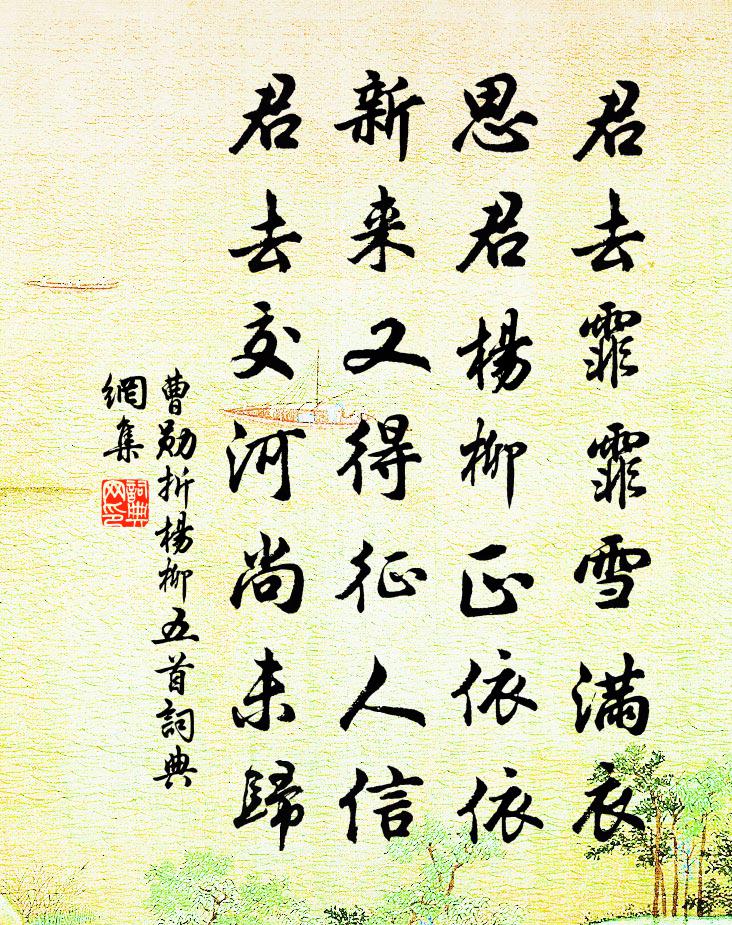 君去霏霏雪满衣
思君楊柳正依依
新来又得征人信
君去交河尚未歸
曹勋折楊柳五首詞典
網集
詞典网印